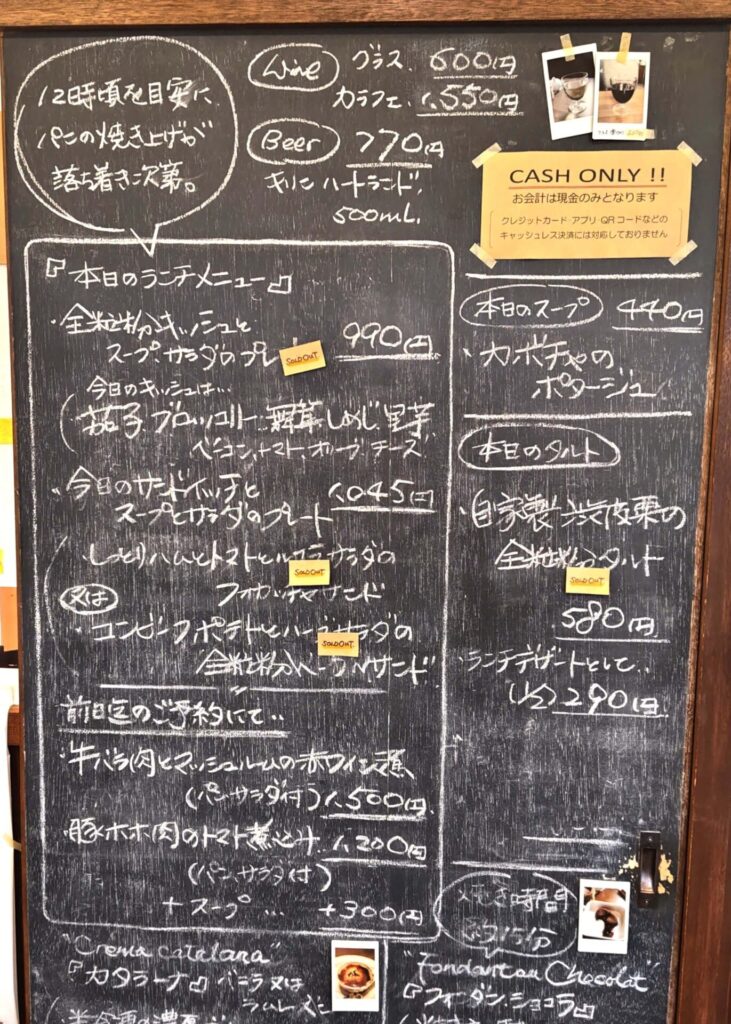 12時頃を目安に
パンの焼き上げが
落ち着き次第。
Wine グラス 600円
カラフェ 1,550円
Beer 770円
キリン ハートランド
500mL
CASH ONLY !!
お会計は現金のみとなります
クレジットカード アプリ QRコードなどの
キャッシュレス決済には対応しておりません
『本日のランチメニュー』
・全粒粉キッシュと
スープサラダのプレ 990円
SOLD OUT
今日のキッシュは…
茄子 ブロッコリー 舞茸 しめじ 里芋
ベーコン、トマト、オリーブ、チーズ
・今日のサンドイッチと 1,045円
スープとサラダのプレート
しっとりハムとトマトと サラダの
SOLD OUT
フォカッチャサンド
又は
コンビーフポテトとハーブサラダの
SOLD OUT
全粒粉ベーグルサンド
前日迄のご予約にて‥
・牛バラ肉とマッシュルームの赤ワイン煮
(パン、サラダ付) 1,500円
・豚ホホ肉のトマト煮込み 1,200円
(パン、サラダ付)
+スープ … +300円
本日のスープ 440円
・カボチャの
ポタージュ
本日のタルト
・自家製 渋皮栗の
全粒粉タルト
SOLD OUT
580円
ランチデザートとして‥
(1/2) 290円
"Crema catalana"
『カタラーナ』バニラ又は
ラムレーズン
焼き時間
約15分
"Fondant au Chocolat"
『フォンダン・ショコラ』